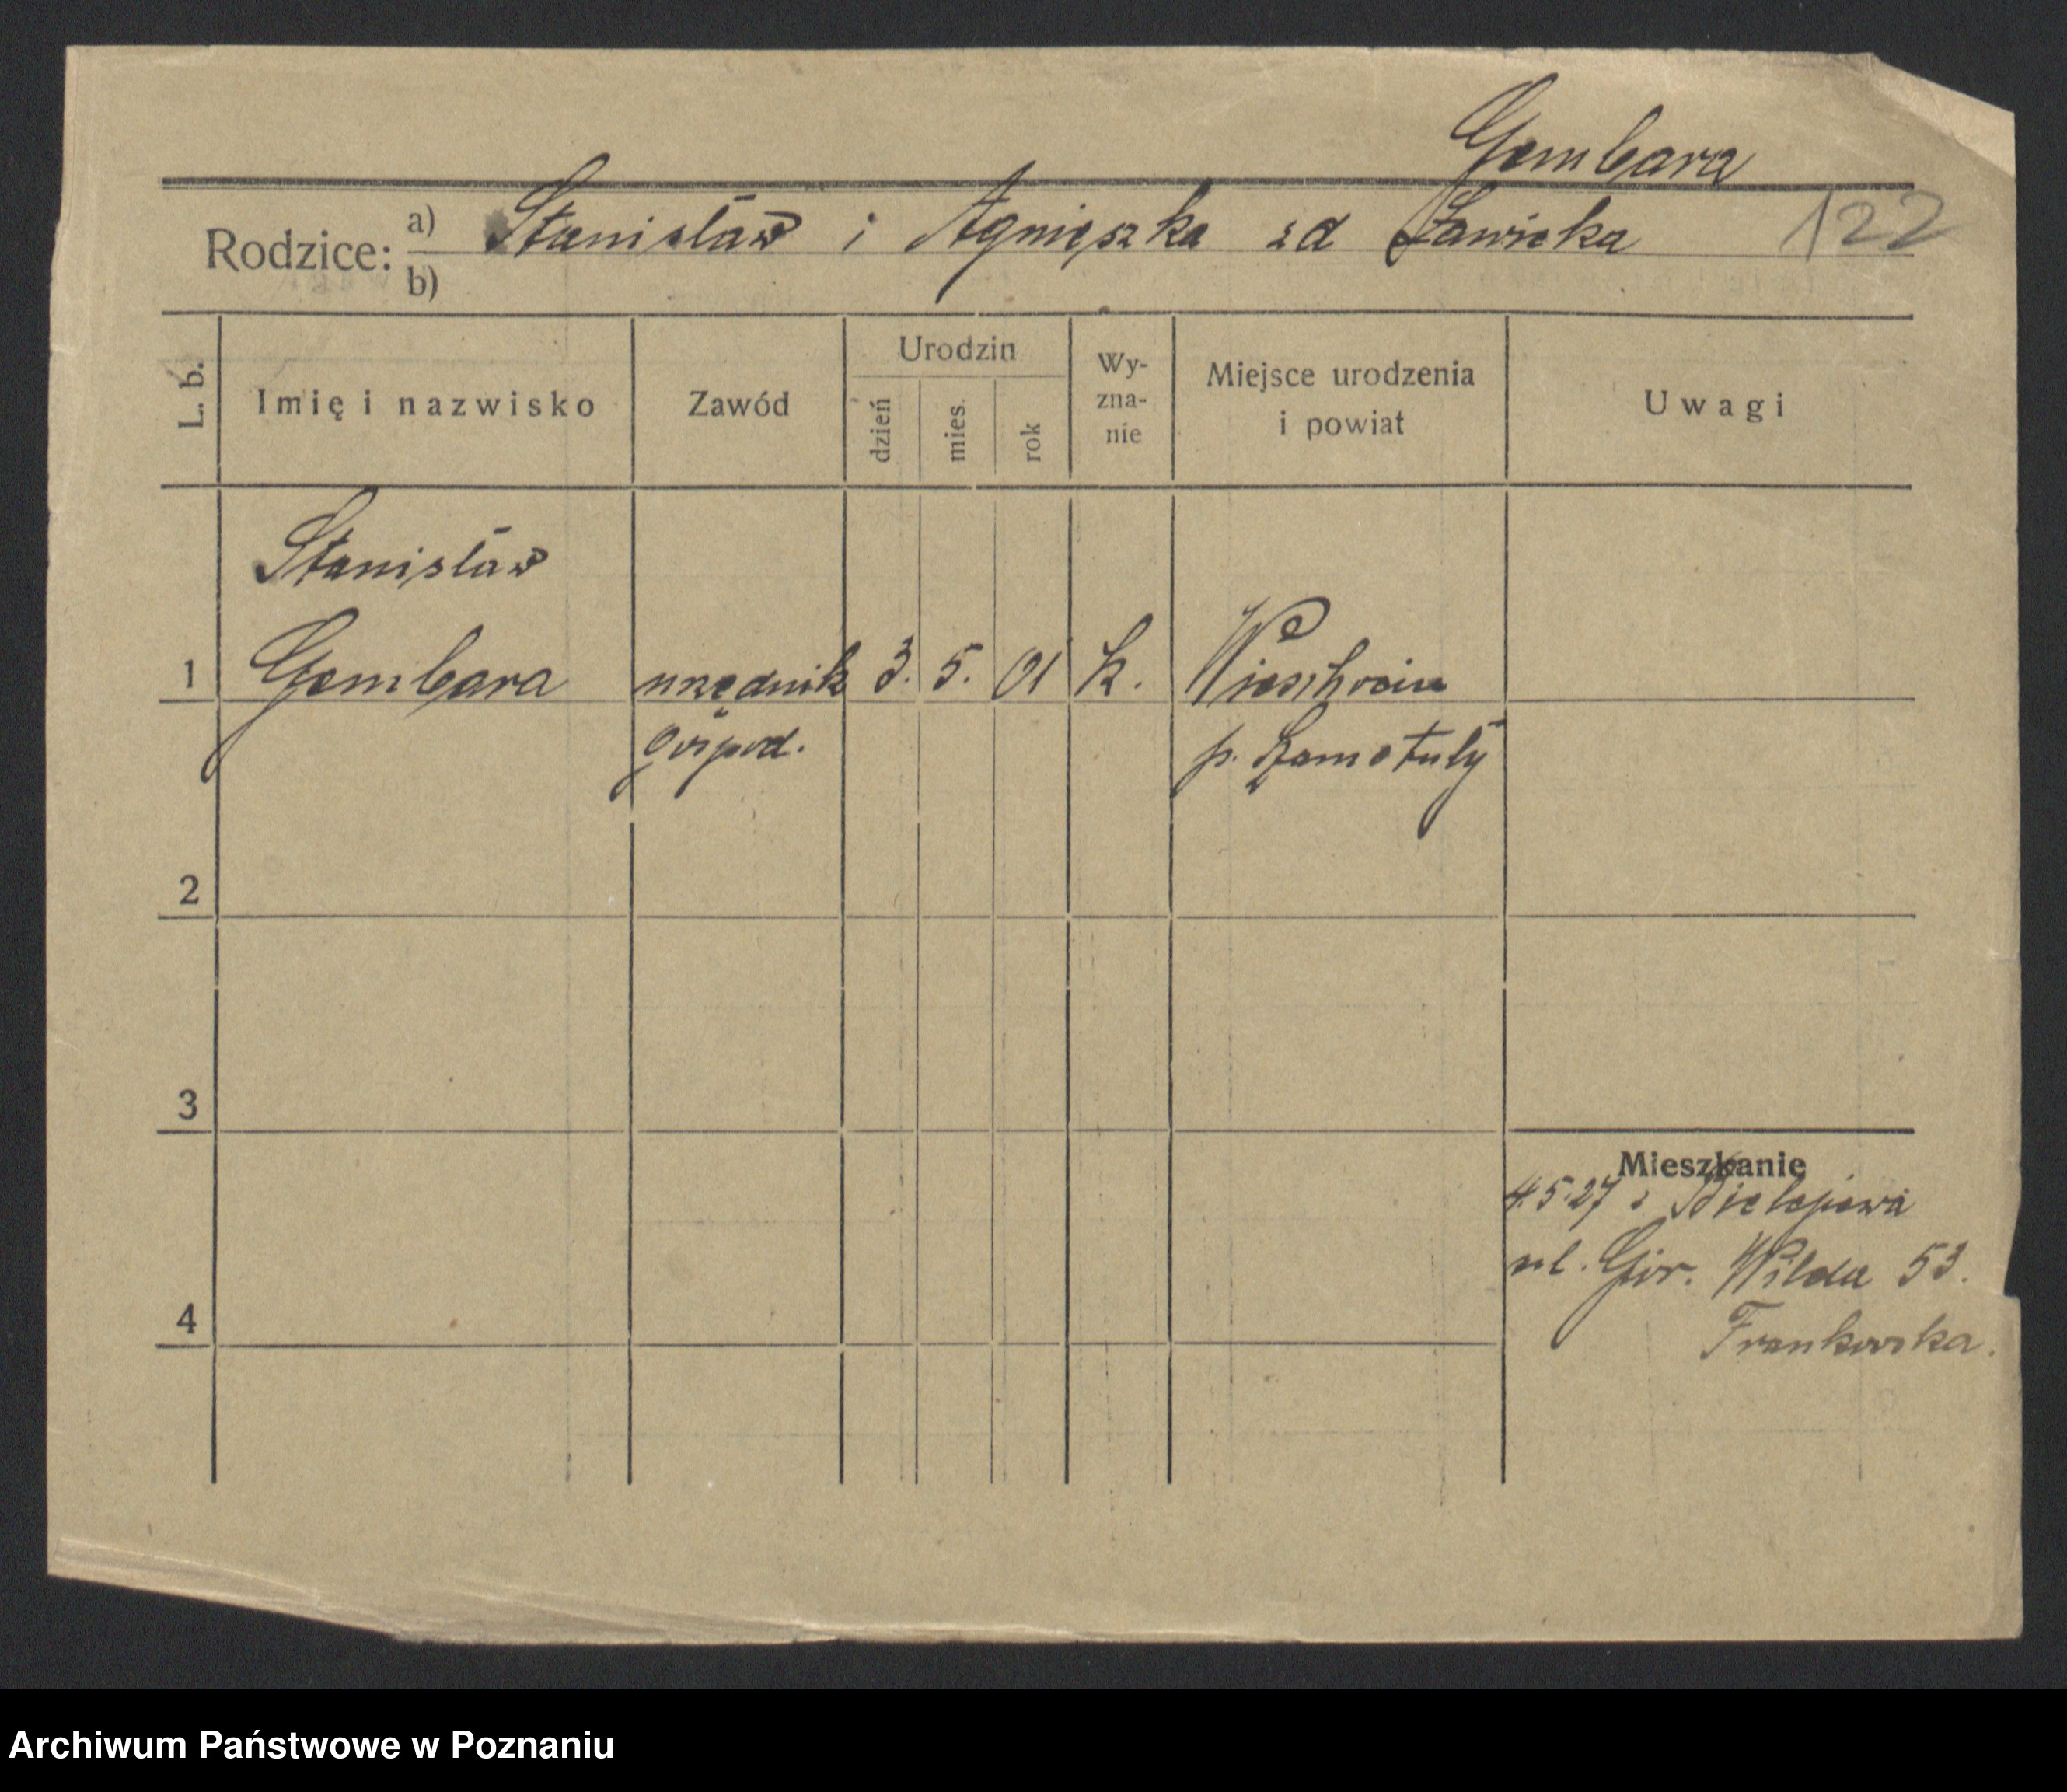 Gembara
Rodzice: a) Stanisław i Agnieszka zd Ławicka 122
b)
L. b. Imię i nazwisko Zawód Urodzin dzień mies. rok Wy-zna-nie Miejsce urodzenia i powiat Uwagi
Stanisław
1 Gembara urzędnik 3. 5. 01 k.
gospod. p. Szamotuły
2
3
Mieszkanie
4.5.27 z Bielejewa
ul. Gór. Wilda 53.
4 Frankowska.
Archiwum Państwowe w Poznaniu